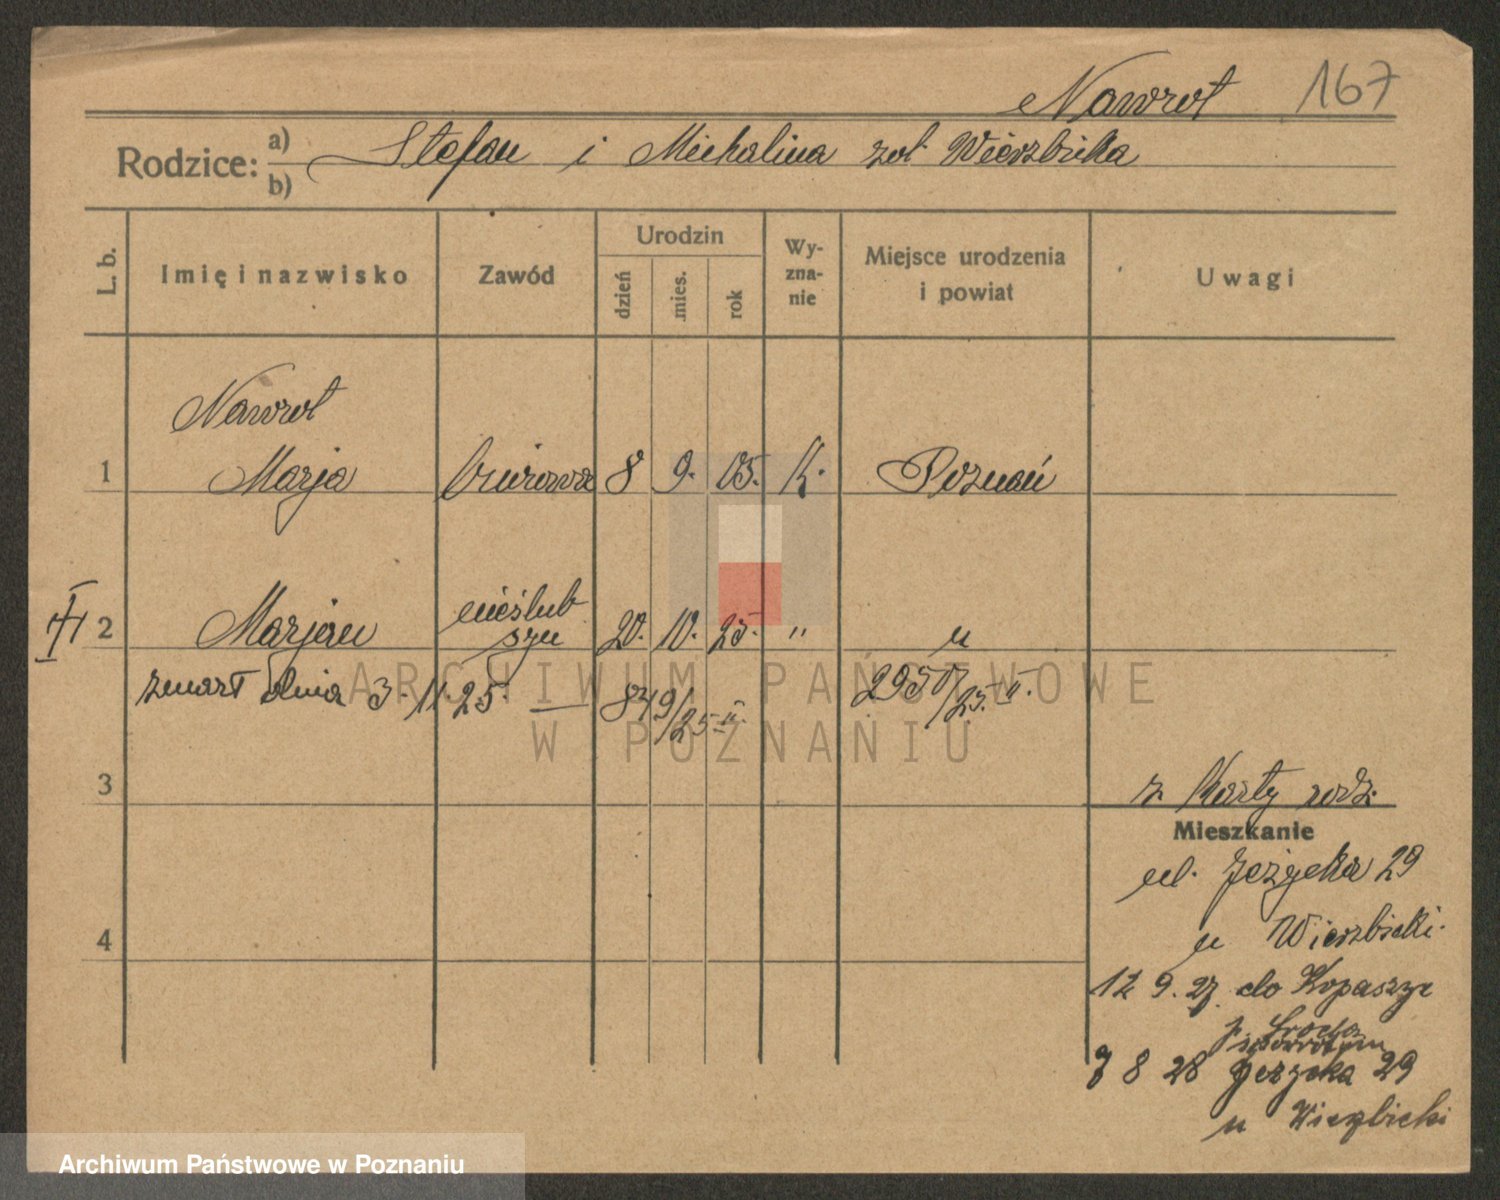 Nawrot 167
Rodzice: a) Stefan i Michalina
b)
L. b. Imię i nazwisko Zawód Urodzin dzień mies. rok Wy-
zna-
nie Miejsce urodzenia
i powiat Uwagi
Nawrot
1 Marja biurowa 8 9. 05. k. Poznań
nieślub
2 Marjan szu 20. 10. 25. " u
zmart dnia 3. 11. 25. — 849/25 II. 2950/25. II.
3
z Karty rodz.
Mieszkanie
ul. Jeżycka 29
u Wierzbicki.
4
12 9. 27. do Kopaszyc
p. Środa
7 8 28 Jeżycka 29
u Wierzbicki
ARCHIWUM PAŃSTWOWE
W POZNANIU
Archiwum Państwowe w Poznaniu